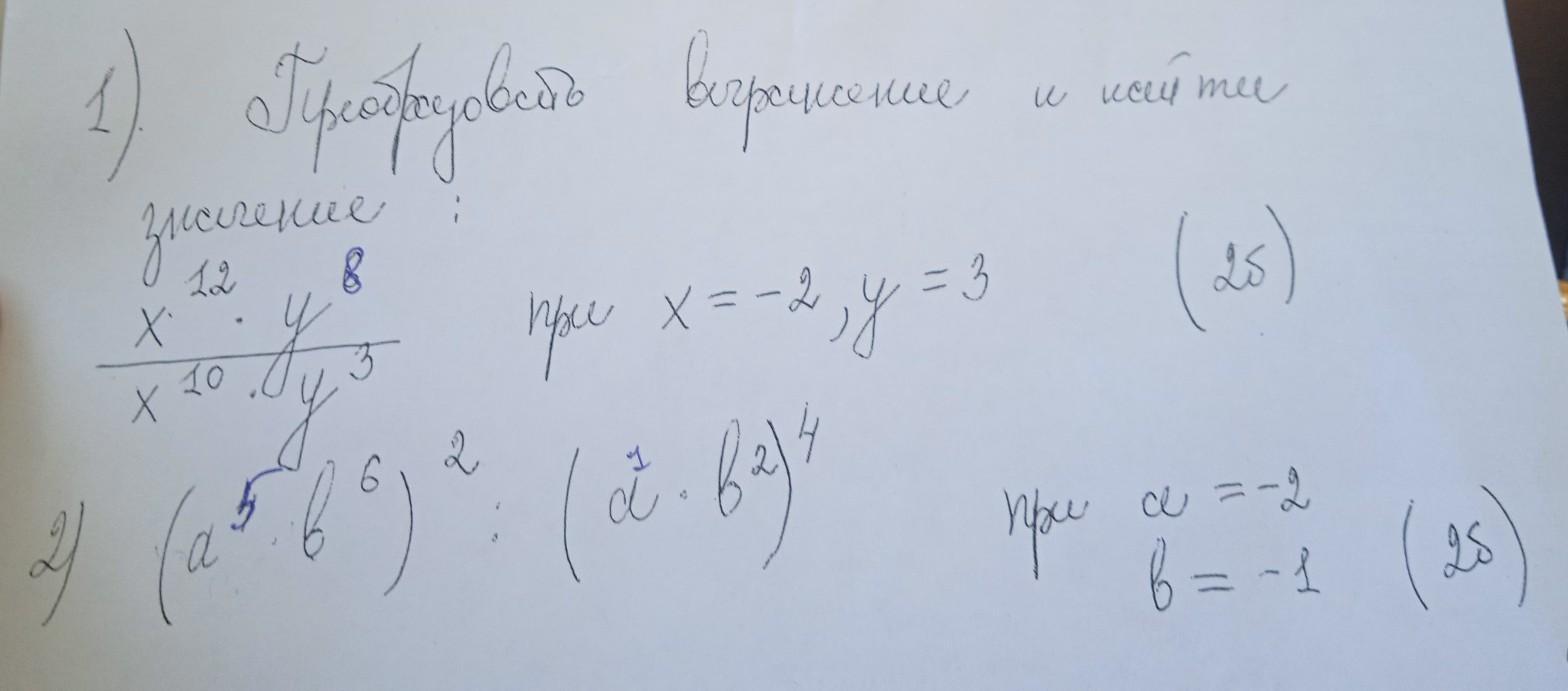 1). Преобразовать выражение и найти
значение :
x¹² · y⁸ при x = -2, y = 3 (2б)
x¹⁰ · y³
2) (a⁵ · b⁶)² : (a¹ · b²)⁴ при a = -2
b = -1 (2б)